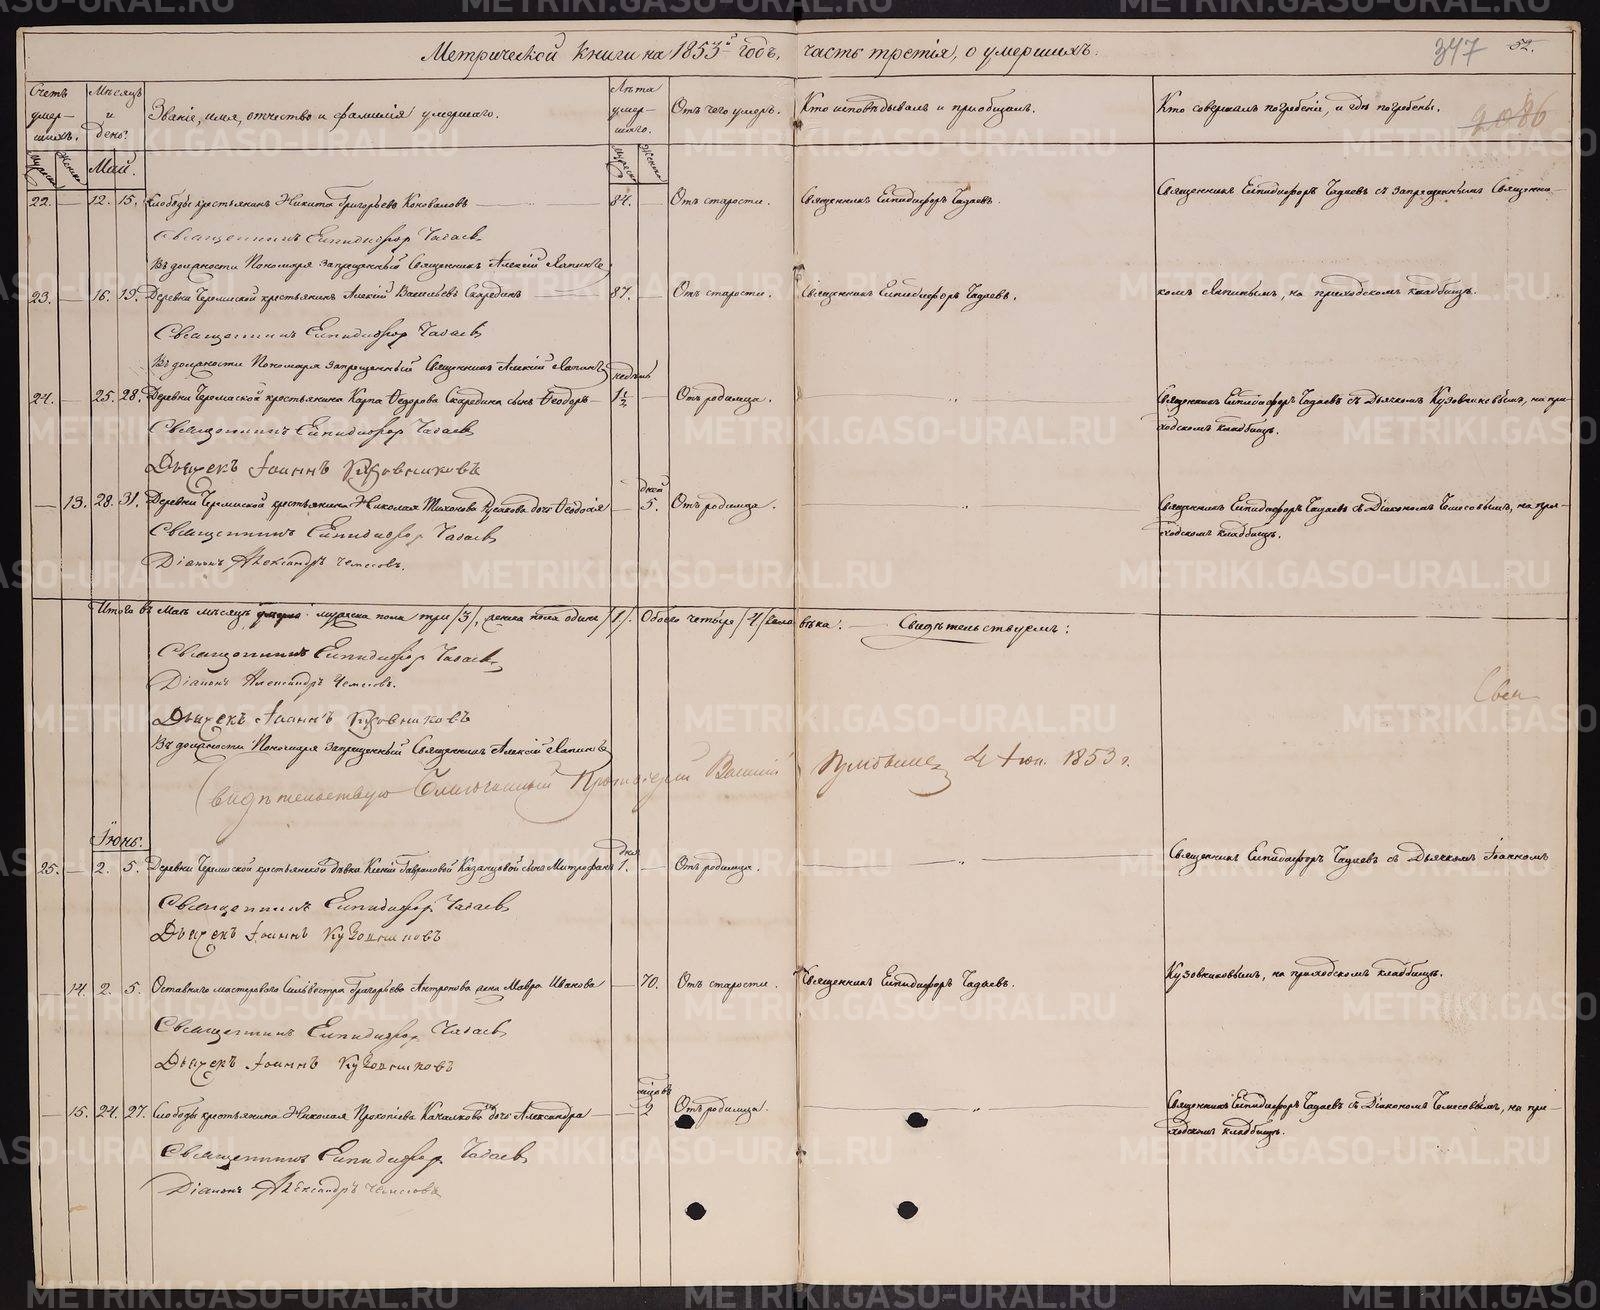 Метрической книги на 1853й годъ, часть третія, о умершихъ.
347
52.
Счетъ умер-шихъ.
Мѣсяцъ и день.
Званіе, имя, отчество и фамилія умершаго.
Лѣта умер-шаго.
Отъ чего умеръ.
Кто исповѣдывалъ и пріобщалъ.
Кто совершалъ погребеніе, и гдѣ погребены.
Мужеска Женска
Май.
Мужеска Женска
22. — 12. 15. Слободы крестьянинъ Никита Григорьевъ Коноваловъ — 84. — Отъ старости. Священникъ Епидифоръ Чадаевъ. Священникъ Епидифоръ Чадаевъ съ запрещеннымъ Священни-
Священникъ Епидифоръ Чадаевъ
Въ должности Пономаря запрещенный Священникъ Алексій Ляпинъ
23. — 16. 19. Деревни Черемиской крестьянинъ Алексій Васильевъ Скарединъ — 87. — Отъ старости. Священникъ Епидифоръ Чадаевъ. комъ Ляпинымъ, на приходскомъ кладбищѣ.
Священникъ Епидифоръ Чадаевъ
Въ должности Пономаря запрещенный Священникъ Алексій Ляпинъ
недѣль
24. — 25. 28. Деревни Черемиской крестьянина Карпа Ѳедорова Скаредина сынъ Ѳеодоръ — 1½ — Отъ родимца. — „ — Священникъ Епидифоръ Чадаевъ съ Дьячкомъ Кузовниковымъ, на при-
ходскомъ кладбищѣ.
Священникъ Епидифоръ Чадаевъ
Дьячекъ Іоаннъ Кузовниковъ
дней
— 13. 28. 31. Деревни Черемиской крестьянина Николая Тихонова дочь Ѳеодосія — 5. Отъ родимца. — „ — Священникъ Епидифоръ Чадаевъ съ Діакономъ Чемесовымъ, на при-
ходскомъ кладбищѣ.
Священникъ Епидифоръ Чадаевъ
Діаконъ Александръ Чемесовъ.
Итого въ Маѣ мѣсяцѣ умерло: мужеска пола три /3/, женска пола одина /1/. Обоего четыре /4/ человѣка. — Свидѣтельствуемъ:
Священникъ Епидифоръ Чадаевъ
Діаконъ Александръ Чемесовъ.
Свед
Дьячекъ Іоаннъ Кузовниковъ
Въ должности Пономаря запрещенный Священникъ Алексій Ляпинъ
Свидѣтельствую Благочинный Протоіерей 4 Іюн. 1853 г.
Іюнь.
дня
25. — 2. 5. Деревни Черемиской крестьянской дѣвки Ксеніи Гавриловой Казанцовой сынъ Митрофанъ 1. — Отъ родимца. — „ — Священникъ Епидифоръ Чадаевъ съ Дьячкомъ Іоанномъ
Священникъ Епидифоръ Чадаевъ
Дьячекъ Іоаннъ Кузовниковъ
— 14. 2. 5. Оставнаго мастероваго Сильвестра Григорьева Антропова жена Мавра Иванова — 70. Отъ старости. Священникъ Епидифоръ Чадаевъ. Кузовниковымъ, на приходскомъ кладбищѣ.
Священникъ Епидифоръ Чадаевъ
Дьячекъ Іоаннъ Кузовниковъ
мѣсяцовъ
— 15. 24. 27. Слободы крестьянина Николая Прокопіева Качалкова дочь Александра — 2 Отъ родимца. — „ — Священникъ Епидифоръ Чадаевъ съ Діакономъ Чемесовымъ, на при-
ходскомъ кладбищѣ.
Священникъ Епидифоръ Чадаевъ
Діаконъ Александръ Чемесовъ
METRIKI.GASO-URAL.RU